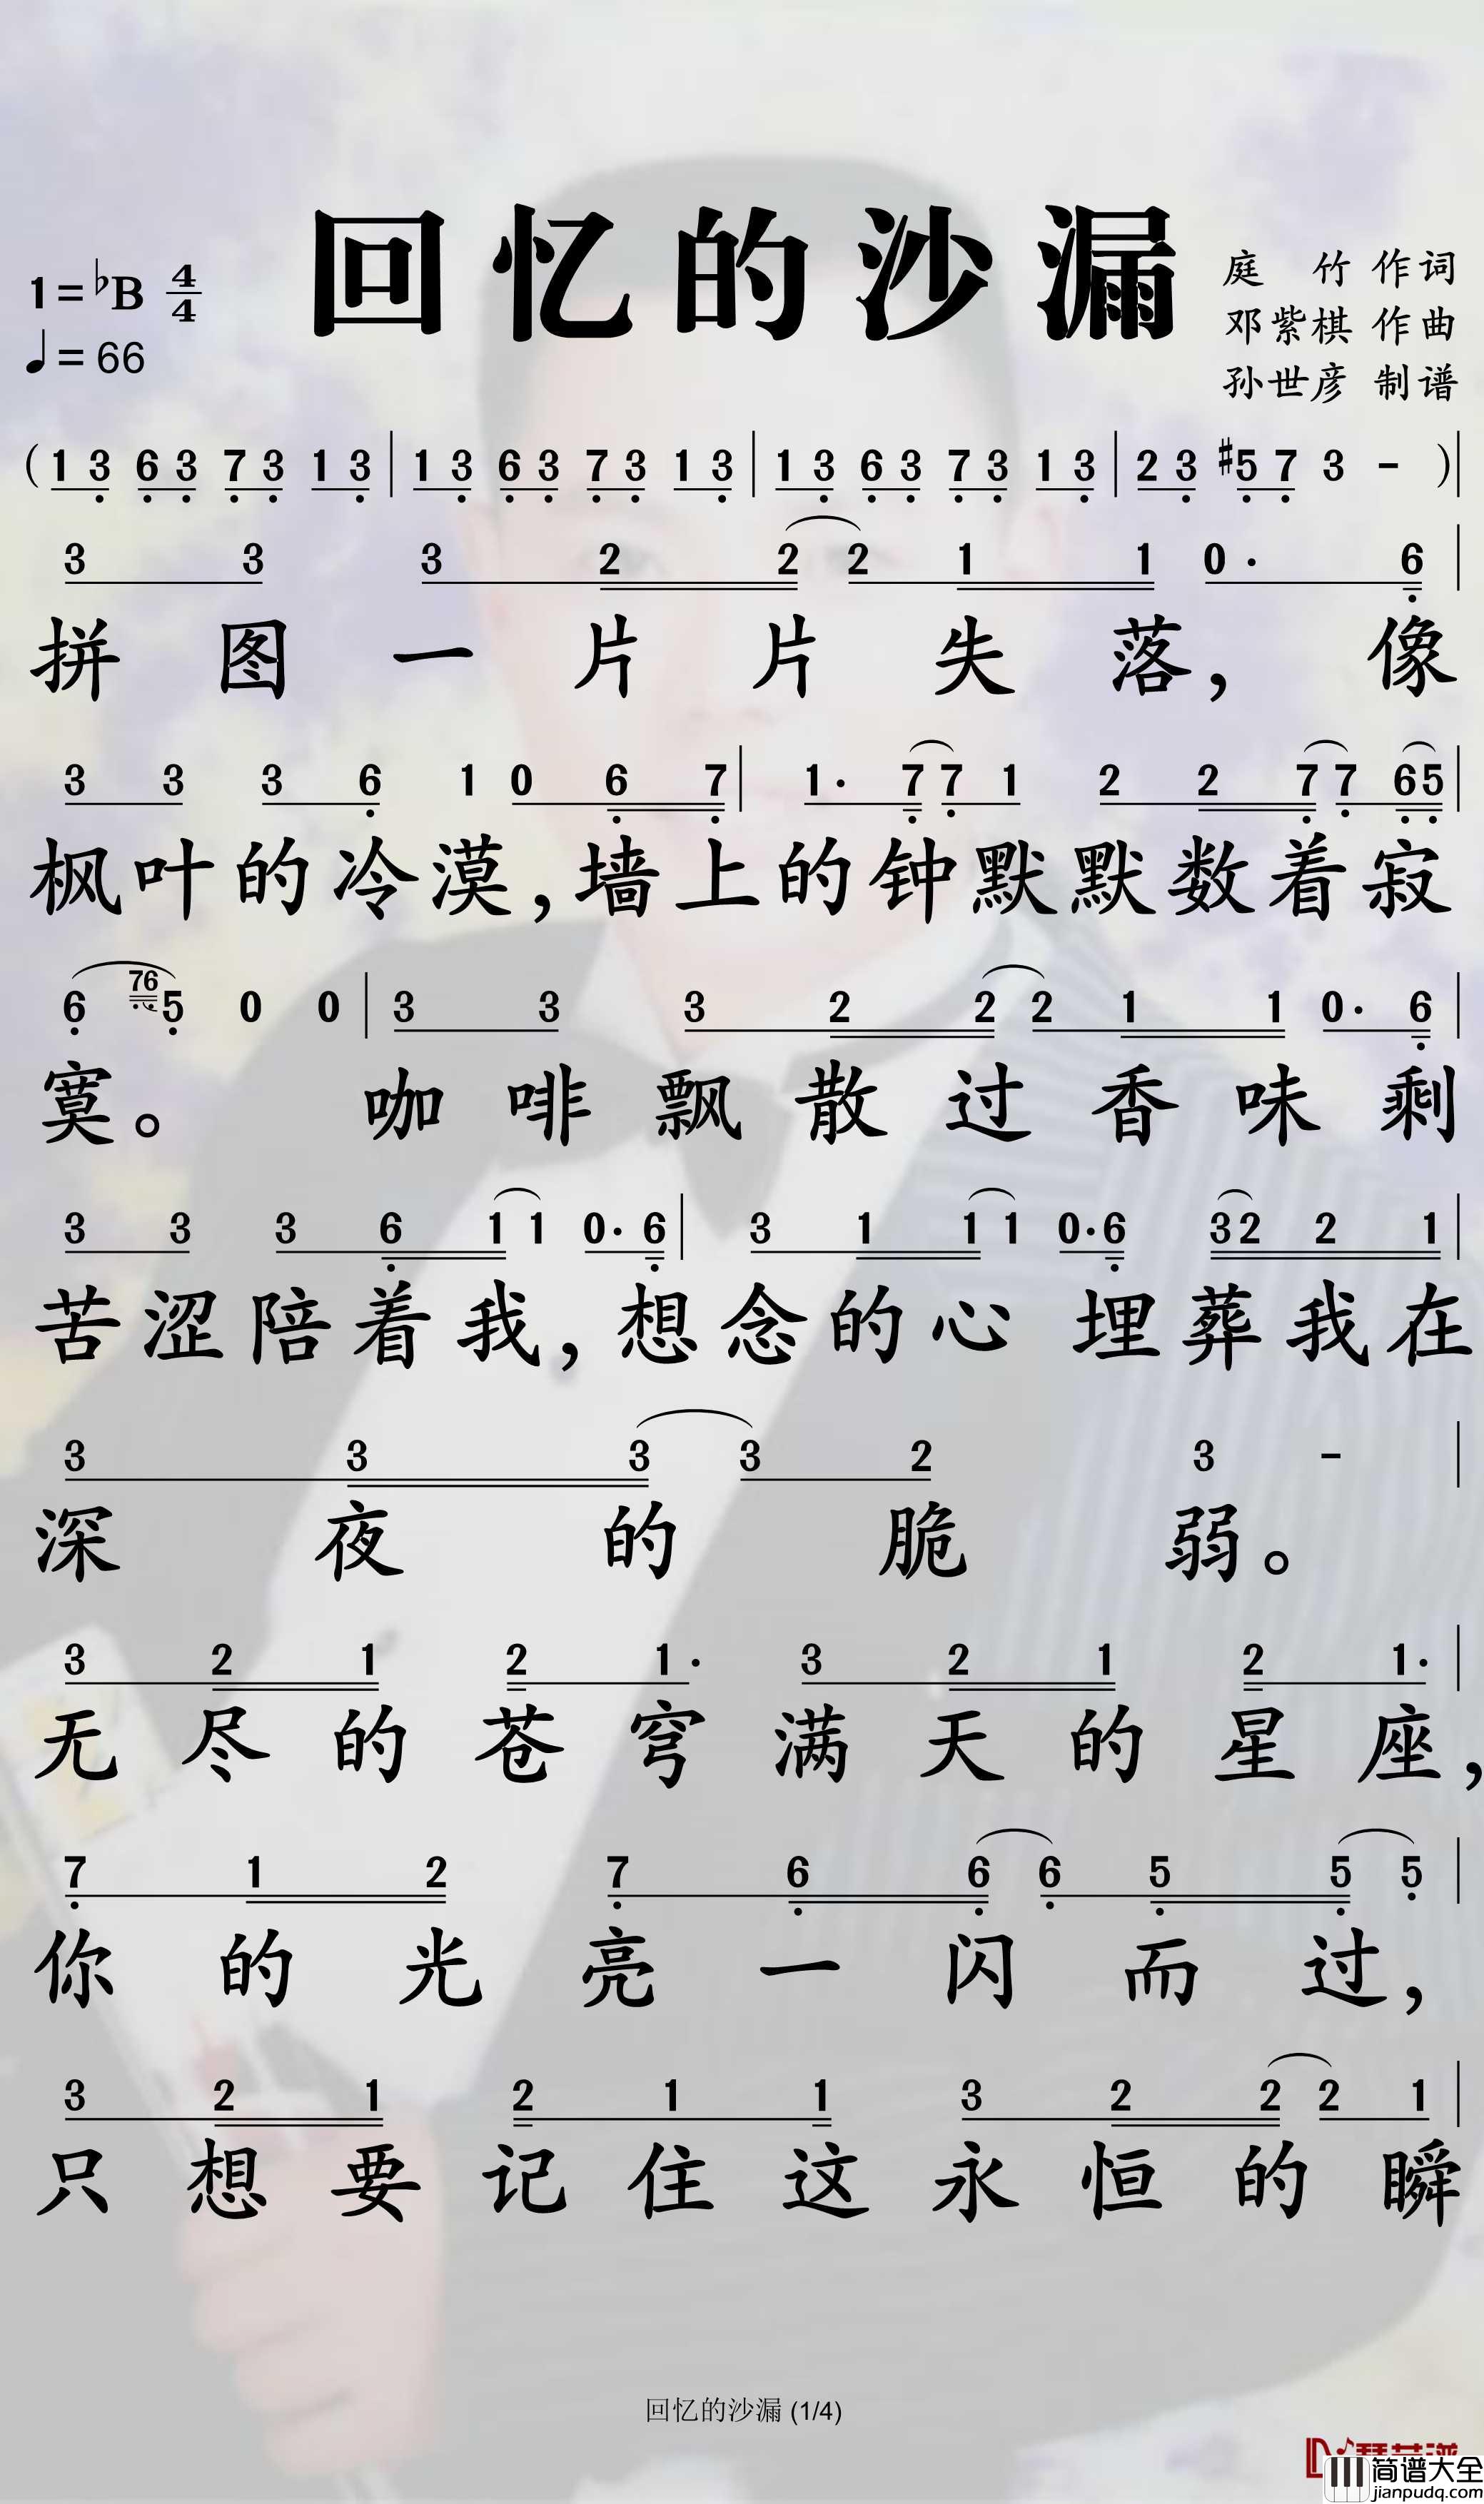 回忆的沙漏
1=♭B 4/4
♩=66
庭 竹 作词
邓紫棋 作曲
孙世彦 制谱
(1 3 6 3 7 3 1 3 | 1 3 6 3 7 3 1 3 | 1 3 6 3 7 3 1 3 | 2 3 #5 7 3 - )|
3 3 3 2 2 2 1 1 0· 6 |
拼图一片片失落，像
3 3 3 6 1 0 6 7 | 1· 7 7 1 2 2 7 7 6 5 |
枫叶的冷漠，墙上的钟默默数着寂
6 76 5 0 0 | 3 3 3 2 2 2 1 1 0· 6 |
寞。 咖啡飘散过香味剩
3 3 3 6 1 1 0· 6 | 3 1 1 1 0· 6 3 2 2 1 |
苦涩陪着我，想念的心 埋葬我在
3 3 3 3 2 3 - |
深夜的脆弱。
3 2 1 2 1· 3 2 1 2 1· |
无尽的苍穹满天的星座，
7 1 2 7 6 6 6 5 5 5 |
你的光亮一闪而过，
3 2 1 2 1 1 3 2 2 2 1 |
只想要记住这永恒的瞬
回忆的沙漏 (1/4)
简谱大全
jianpudq.com